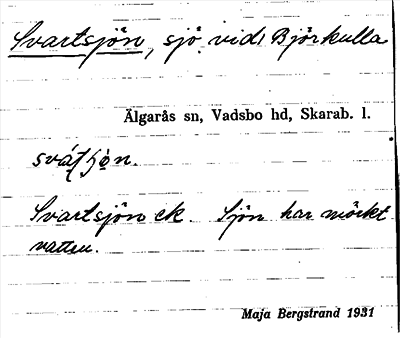 Svartsjön, sjö vid Björkulla
Älgarås sn, Vadsbo hd, Skarab. l.
Svartsjön ek. Sjön har mörket
vatten.
Maja Bergstrand 1931